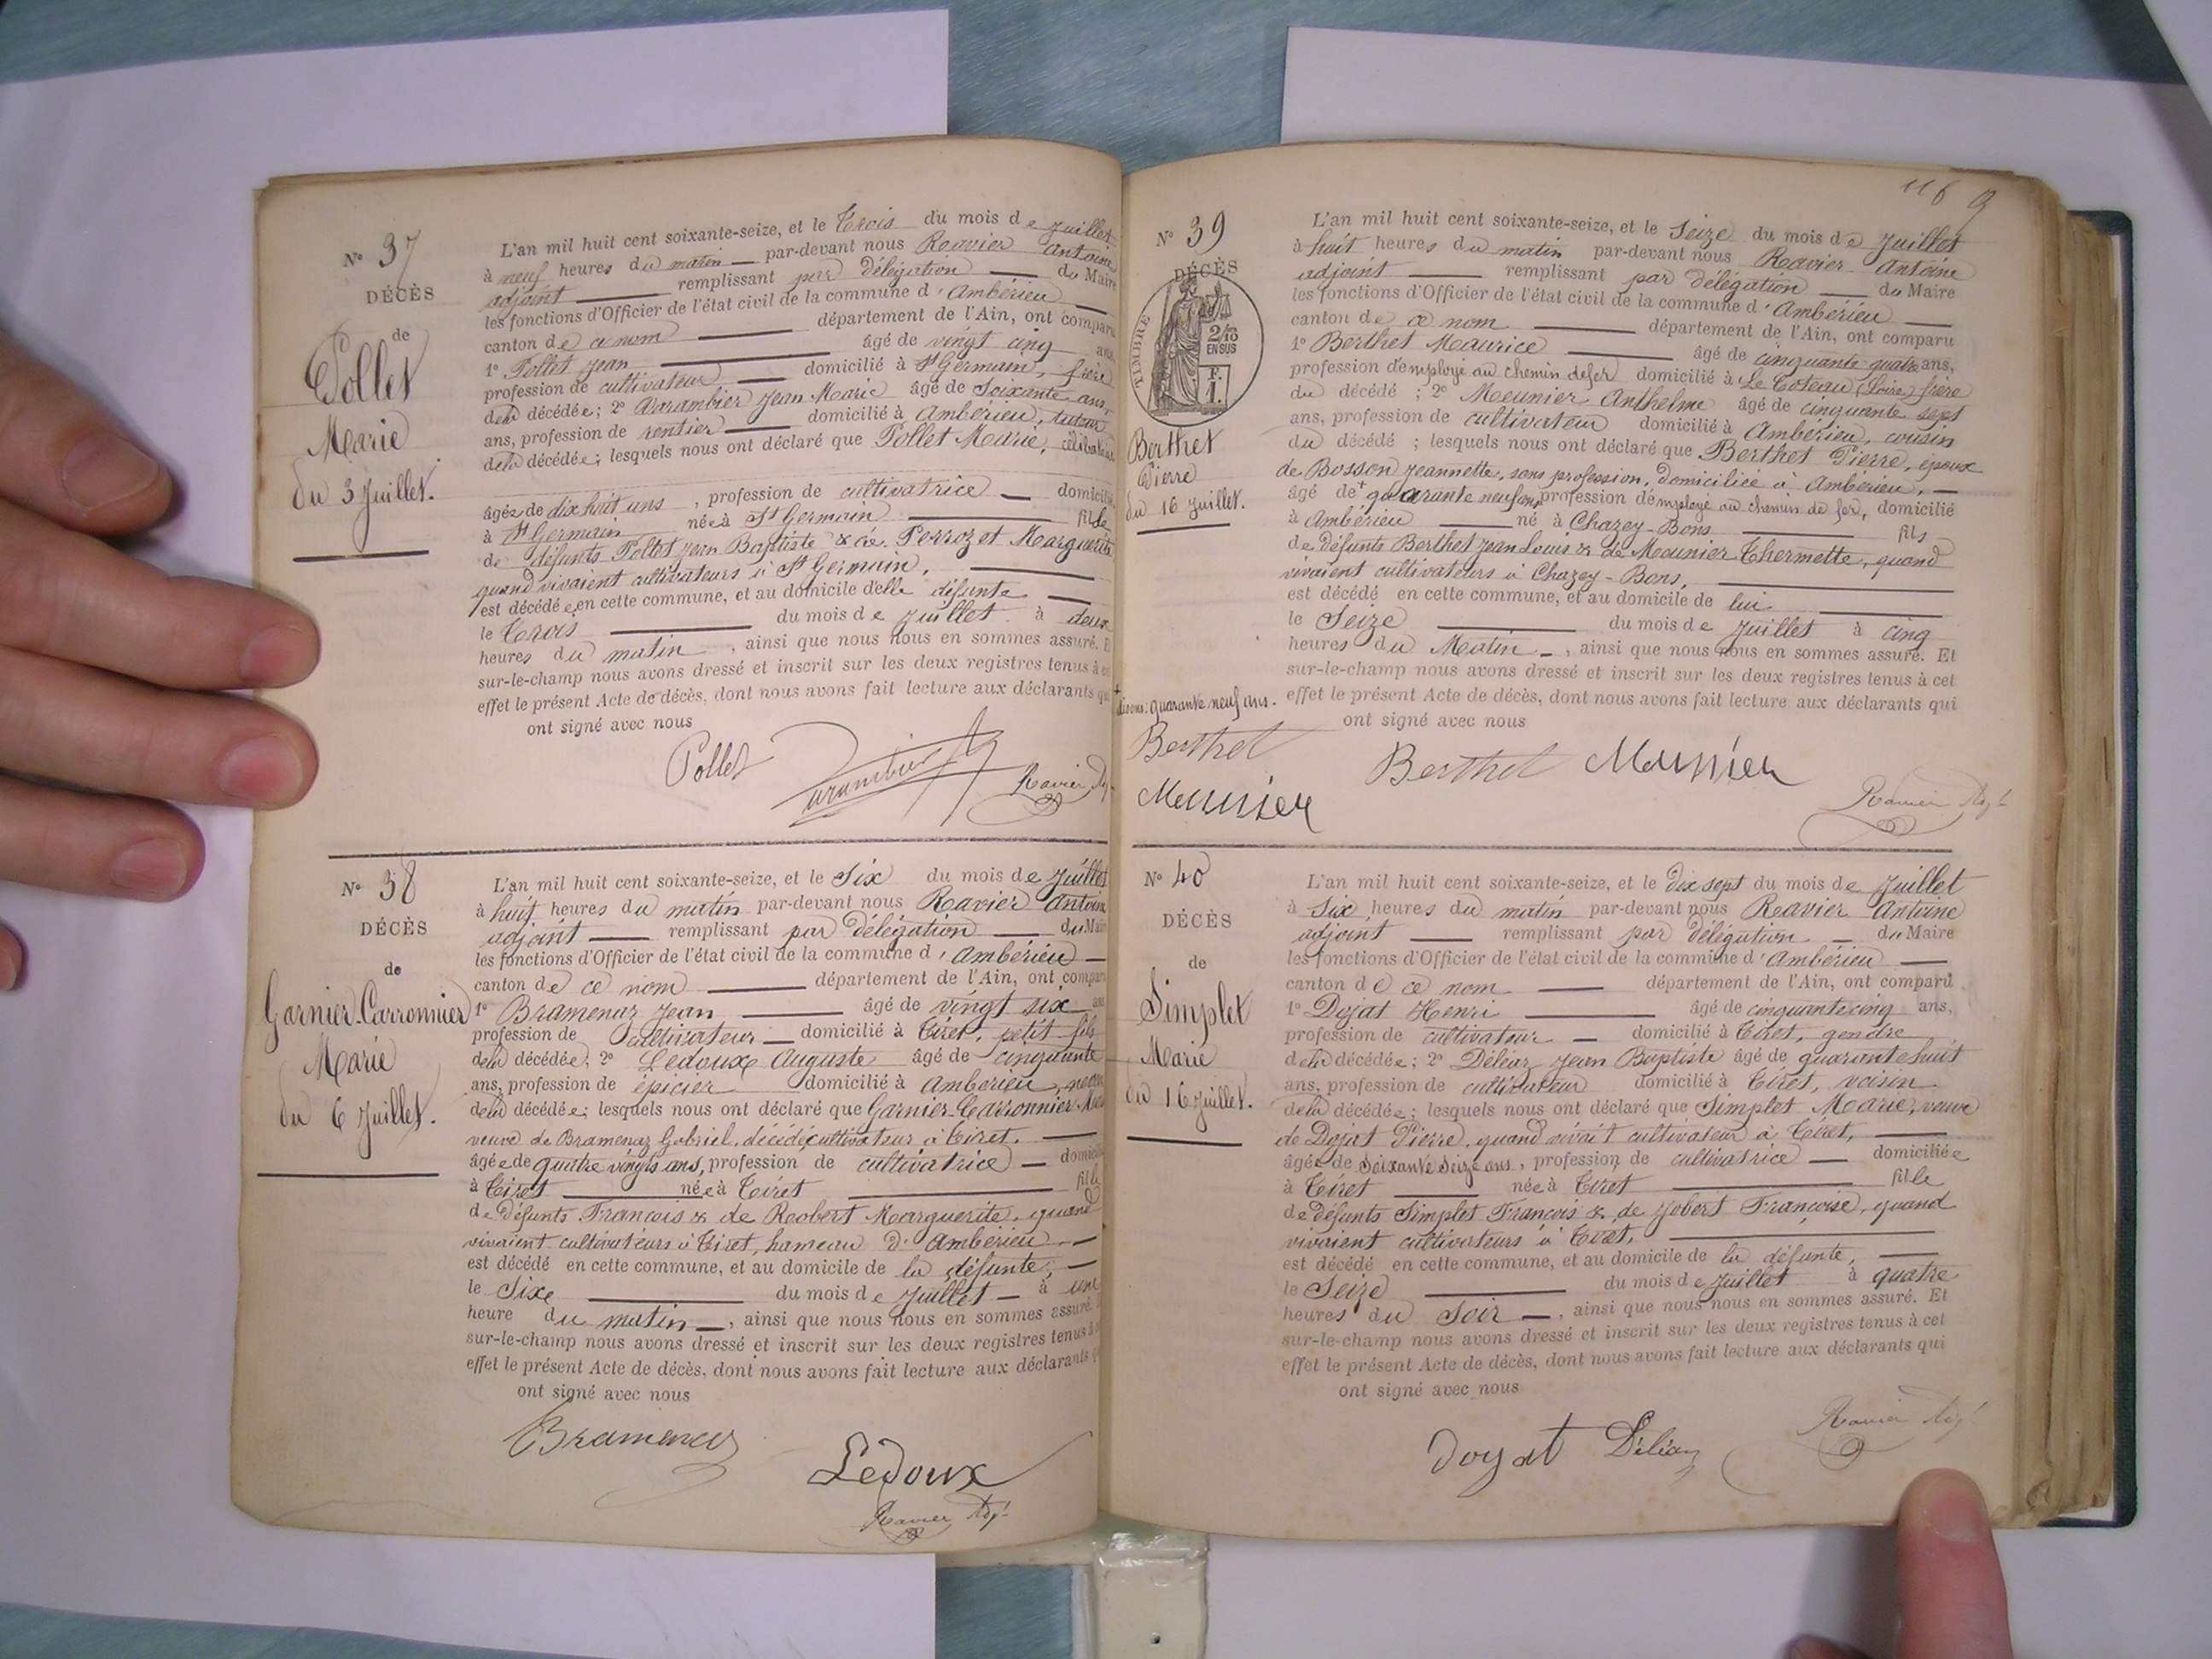 N° 37
DÉCÈS
de
Pollet
Marie
du 3 Juillet.
L'an mil huit cent soixante-seize, et le Trois du mois de Juillet
à neuf heures du matin par-devant nous Ravier Antoine
adjoint remplissant par délégation du Maire
les fonctions d'Officier de l'état civil de la commune d'Ambérieu
canton de ce nom département de l'Ain, ont comparu
1° Pollet Jean âgé de vingt cinq ans,
profession de cultivateur domicilié à St Germain, frère
de la décédée; 2° Varambier Jean Marie âgé de Soixante ans,
ans, profession de rentier domicilié à Ambérieu, tuteur
de la décédée; lesquels nous ont déclaré que Pollet Marie, célibataire
âgée de dix huit ans, profession de cultivatrice domiciliée
à St Germain née à St Germain fille
de défunts Pollet Jean Baptiste & de Perrozet Marguerite
quand vivaient cultivateurs à St Germain,
est décédée en cette commune, et au domicile d'elle défunte
le Trois du mois de Juillet à deux
heures du matin, ainsi que nous nous en sommes assuré. Et
sur-le-champ nous avons dressé et inscrit sur les deux registres tenus à cet
effet le présent Acte de décès, dont nous avons fait lecture aux déclarants qui
ont signé avec nous
Pollet Ravier Adj.
N° 38
DÉCÈS
de
Garnier-Carronnier
Marie
du 6 Juillet.
L'an mil huit cent soixante-seize, et le Six du mois de Juillet
à huit heures du matin par-devant nous Ravier Antoine
adjoint remplissant par délégation du Maire
les fonctions d'Officier de l'état civil de la commune d'Ambérieu
canton de ce nom département de l'Ain, ont comparu
1° Bramenaz Jean âgé de vingt six ans
profession de Cultivateur domicilié à Tiret, petit fils
de la décédée; 2° Ledoux Auguste âgé de cinquante
ans, profession de épicier domicilié à Amberieu, neveu
de la décédée; lesquels nous ont déclaré que Garnier-Carronnier Marie
veuve de Bramenaz Gabriel, décédé cultivateur à Tiret,
âgée de quatre vingts ans, profession de cultivatrice domiciliée
à Tiret née à Tiret fille
de défunts François & de Robert Marguerite, quand
vivaient cultivateurs à Tiret, hameau d'Ambérieu
est décédé en cette commune, et au domicile de la défunte,
le Sixe du mois de Juillet à une
heure du matin, ainsi que nous nous en sommes assuré. Et
sur-le-champ nous avons dressé et inscrit sur les deux registres tenus à cet
effet le présent Acte de décès, dont nous avons fait lecture aux déclarants qui
ont signé avec nous
Bramenaz
Ledoux
Ravier Adj.
116 9
N° 39
DÉCÈS
TIMBRE
2/10
EN SUS
F.
1.
Berthet
Pierre
du 16 Juillet.
L'an mil huit cent soixante-seize, et le Seize du mois de Juillet
à huit heures du matin par-devant nous Ravier Antoine
adjoint remplissant par délégation du Maire
les fonctions d'Officier de l'état civil de la commune d'Ambérieu
canton de ce nom département de l'Ain, ont comparu
1° Berthet Maurice âgé de cinquante quatre ans,
profession d'employé au chemin de fer domicilié à Le Coteau (Loire) frère
du décédé; 2° Meunier Anthelme âgé de cinquante sept
ans, profession de cultivateur domicilié à Ambérieu, cousin
du décédé; lesquels nous ont déclaré que Berthet Pierre, époux
de Bosson Jeannette, sans profession, domiciliée à Ambérieu,
âgé de + quarante neuf ans, profession d'employé au chemin de fer, domicilié
à Ambérieu né à Chazey-Bons fils
de défunts Berthet Jean Louis & de Meunier Thermette, quand
vivaient cultivateurs à Chazey-Bons,
est décédé en cette commune, et au domicile de lui
le Seize du mois de Juillet à cinq
heures du Matin, ainsi que nous nous en sommes assuré. Et
sur-le-champ nous avons dressé et inscrit sur les deux registres tenus à cet
effet le présent Acte de décès, dont nous avons fait lecture aux déclarants qui
ont signé avec nous
+ disons: quarante neuf ans.
Berthet
Meunier
Berthet Meunier
Ravier Adj.
N° 40
DÉCÈS
de
Simplet
Marie
du 16 Juillet.
L'an mil huit cent soixante-seize, et le dix sept du mois de Juillet
à Six heures du matin par-devant nous Ravier Antoine
adjoint remplissant par délégation du Maire
les fonctions d'Officier de l'état civil de la commune d'Ambérieu
canton de ce nom département de l'Ain, ont comparu
1° Dojat Henri âgé de cinquante cinq ans,
profession de cultivateur domicilié à Tiret, gendre
de la décédée; 2° Déléaz Jean Baptiste âgé de quarante huit
ans, profession de cultivateur domicilié à Tiret, voisin
de la décédée; lesquels nous ont déclaré que Simplet Marie, veuve
de Dojat Pierre, quand vivait cultivateur à Tiret,
âgée de Soixante Seize ans, profession de cultivatrice domiciliée
à Tiret née à Tiret fille
de défunts Simplet François & de Jobert Françoise, quand
vivaient cultivateurs à Tiret,
est décédé en cette commune, et au domicile de la défunte,
le Seize du mois de Juillet à quatre
heures du Soir, ainsi que nous nous en sommes assuré. Et
sur-le-champ nous avons dressé et inscrit sur les deux registres tenus à cet
effet le présent Acte de décès, dont nous avons fait lecture aux déclarants qui
ont signé avec nous
Doyat Déléaz Ravier Adj.